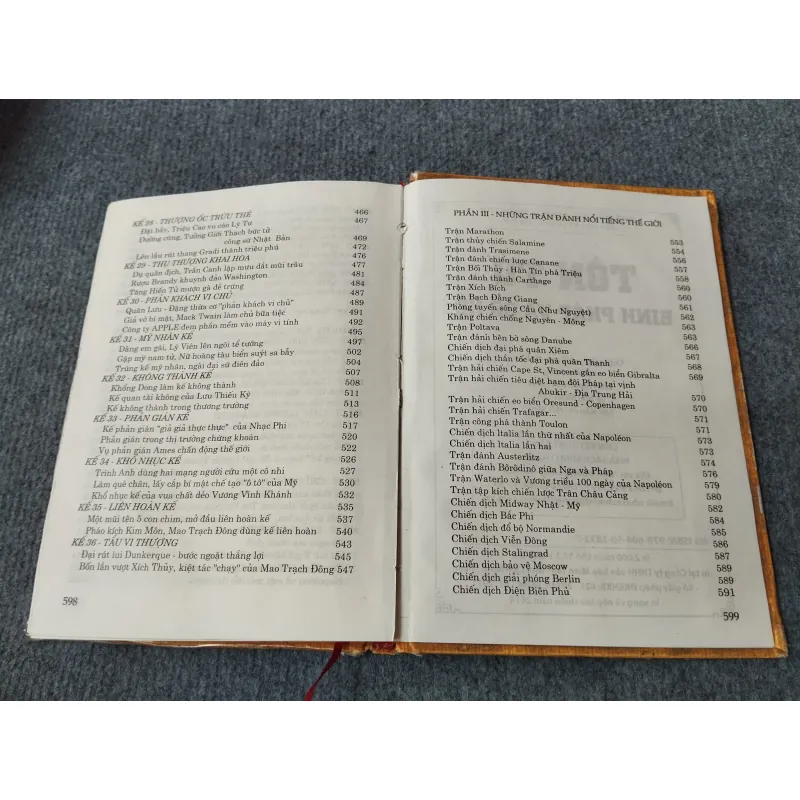 KẾ 28 - THƯỢNG ỐC TRỪU THÊ 466
Đặt bẫy, Triệu Cao vu cáo Lý Tư 467
Đường cùng, Tưởng Giới Thạch bức tử
công sứ Nhật Bản 469
Lên lầu rút thang Gradi thành triệu phú 472
KẾ 29 - THỤ THƯỢNG KHAI HOA 476
Dụ quân địch, Trần Canh lập mưu dắt mũi trâu 477
Rượu Brandy khuynh đảo Washington 481
Tăng Hiến Tử mượn gà đẻ trứng 484
KẾ 30 - PHẢN KHÁCH VI CHỦ 487
Quân Lưu - Đặng thừa cơ "phản khách vi chủ" 489
Giả vờ bí mật, Mack Twain làm chủ bữa tiệc 491
Công ty APPLE đem phần mềm vào máy vi tính 492
KẾ 31 - MỸ NHÂN KẾ 495
Dâng em gái, Lý Viên lên ngôi tể tướng 497
Gặp mỹ nam tử, Nữ hoàng tàu biển suýt sa bẫy 502
Trúng kế mỹ nhân, ngài đại sứ điên đảo 504
KẾ 32 - KHÔNG THÀNH KẾ 507
Khổng Dong làm kế không thành 508
Kế quan tài không của Lưu Thiếu Kỳ 511
Kế không thành trong thương trường 513
KẾ 33 - PHẢN GIÁN KẾ 516
Kế phản gián "giả giả thực thực" của Nhạc Phi 517
Phản gián trong thị trường chứng khoán 520
Vụ phản gián Ames chấn động thế giới 522
KẾ 34 - KHỔ NHỤC KẾ 526
Trình Anh dùng hai mạng người cứu một cô nhi 527
Làm què chân, lấy cắp bí mật chế tạo "ô tô" của Mỹ 530
Khổ nhục kế của vua chất dẻo Vương Vĩnh Khánh 532
KẾ 35 - LIÊN HOÀN KẾ 535
Một mũi tên 5 con chim, mở đầu liên hoàn kế 537
Pháo kích Kim Môn, Mao Trạch Đông dùng kế liên hoàn 540
KẾ 36 - TẨU VI THƯỢNG 543
Đại rút lui Dunkerque - bước ngoặt thắng lợi 545
Bốn lần vượt Xích Thủy, kiệt tác "chạy" của Mao Trạch Đông 547
598
PHẦN III - NHỮNG TRẬN ĐÁNH NỔI TIẾNG THẾ GIỚI
Trận Marathon 553
Trận thủy chiến Salamine 554
Trận đánh Trasimene 556
Trận đánh chiến lược Canane 557
Trận Bối Thủy - Hàn Tín phá Triệu 558
Trận đánh thành Carthage 560
Trận Xích Bích 560
Trận Bạch Đằng Giang 561
Phòng tuyến sông Cầu (Như Nguyệt) 562
Kháng chiến chống Nguyên - Mông 563
Trận Poltava 563
Trận đánh bên bờ sông Danube
Chiến dịch đại phá quân Xiêm 566
Chiến dịch thần tốc đại phá quân Thanh 567
Trận hải chiến Cape St, Vincent gần eo biển Gibralta 568
Trận hải chiến tiêu diệt hạm đội Pháp tại vịnh 569
Abukir - Địa Trung Hải
Trận hải chiến eo biển Oresund - Copenhagen 570
Trận hải chiến Trafagar... 570
Trận công phá thành Toulon 571
Chiến dịch Italia lần thứ nhất của Napoléon 571
Chiến dịch Italia lần hai 573
Trận đánh Austerlitz 573
Trận đánh Bôrôdinô giữa Nga và Pháp 574
Trận Waterlo và Vương triều 100 ngày của Napoléon 576
Trận tập kích chiến lược Trân Châu Cảng 579
Chiến dịch Midway Nhật - Mỹ 580
Chiến dịch Bắc Phi 582
Chiến dịch đổ bộ Normandie 584
Chiến dịch Viễn Đông 585
Chiến dịch Stalingrad 586
Chiến dịch bảo vệ Moscow 587
Chiến dịch giải phóng Berlin 589
Chiến dịch Điện Biên Phủ 589
591
599